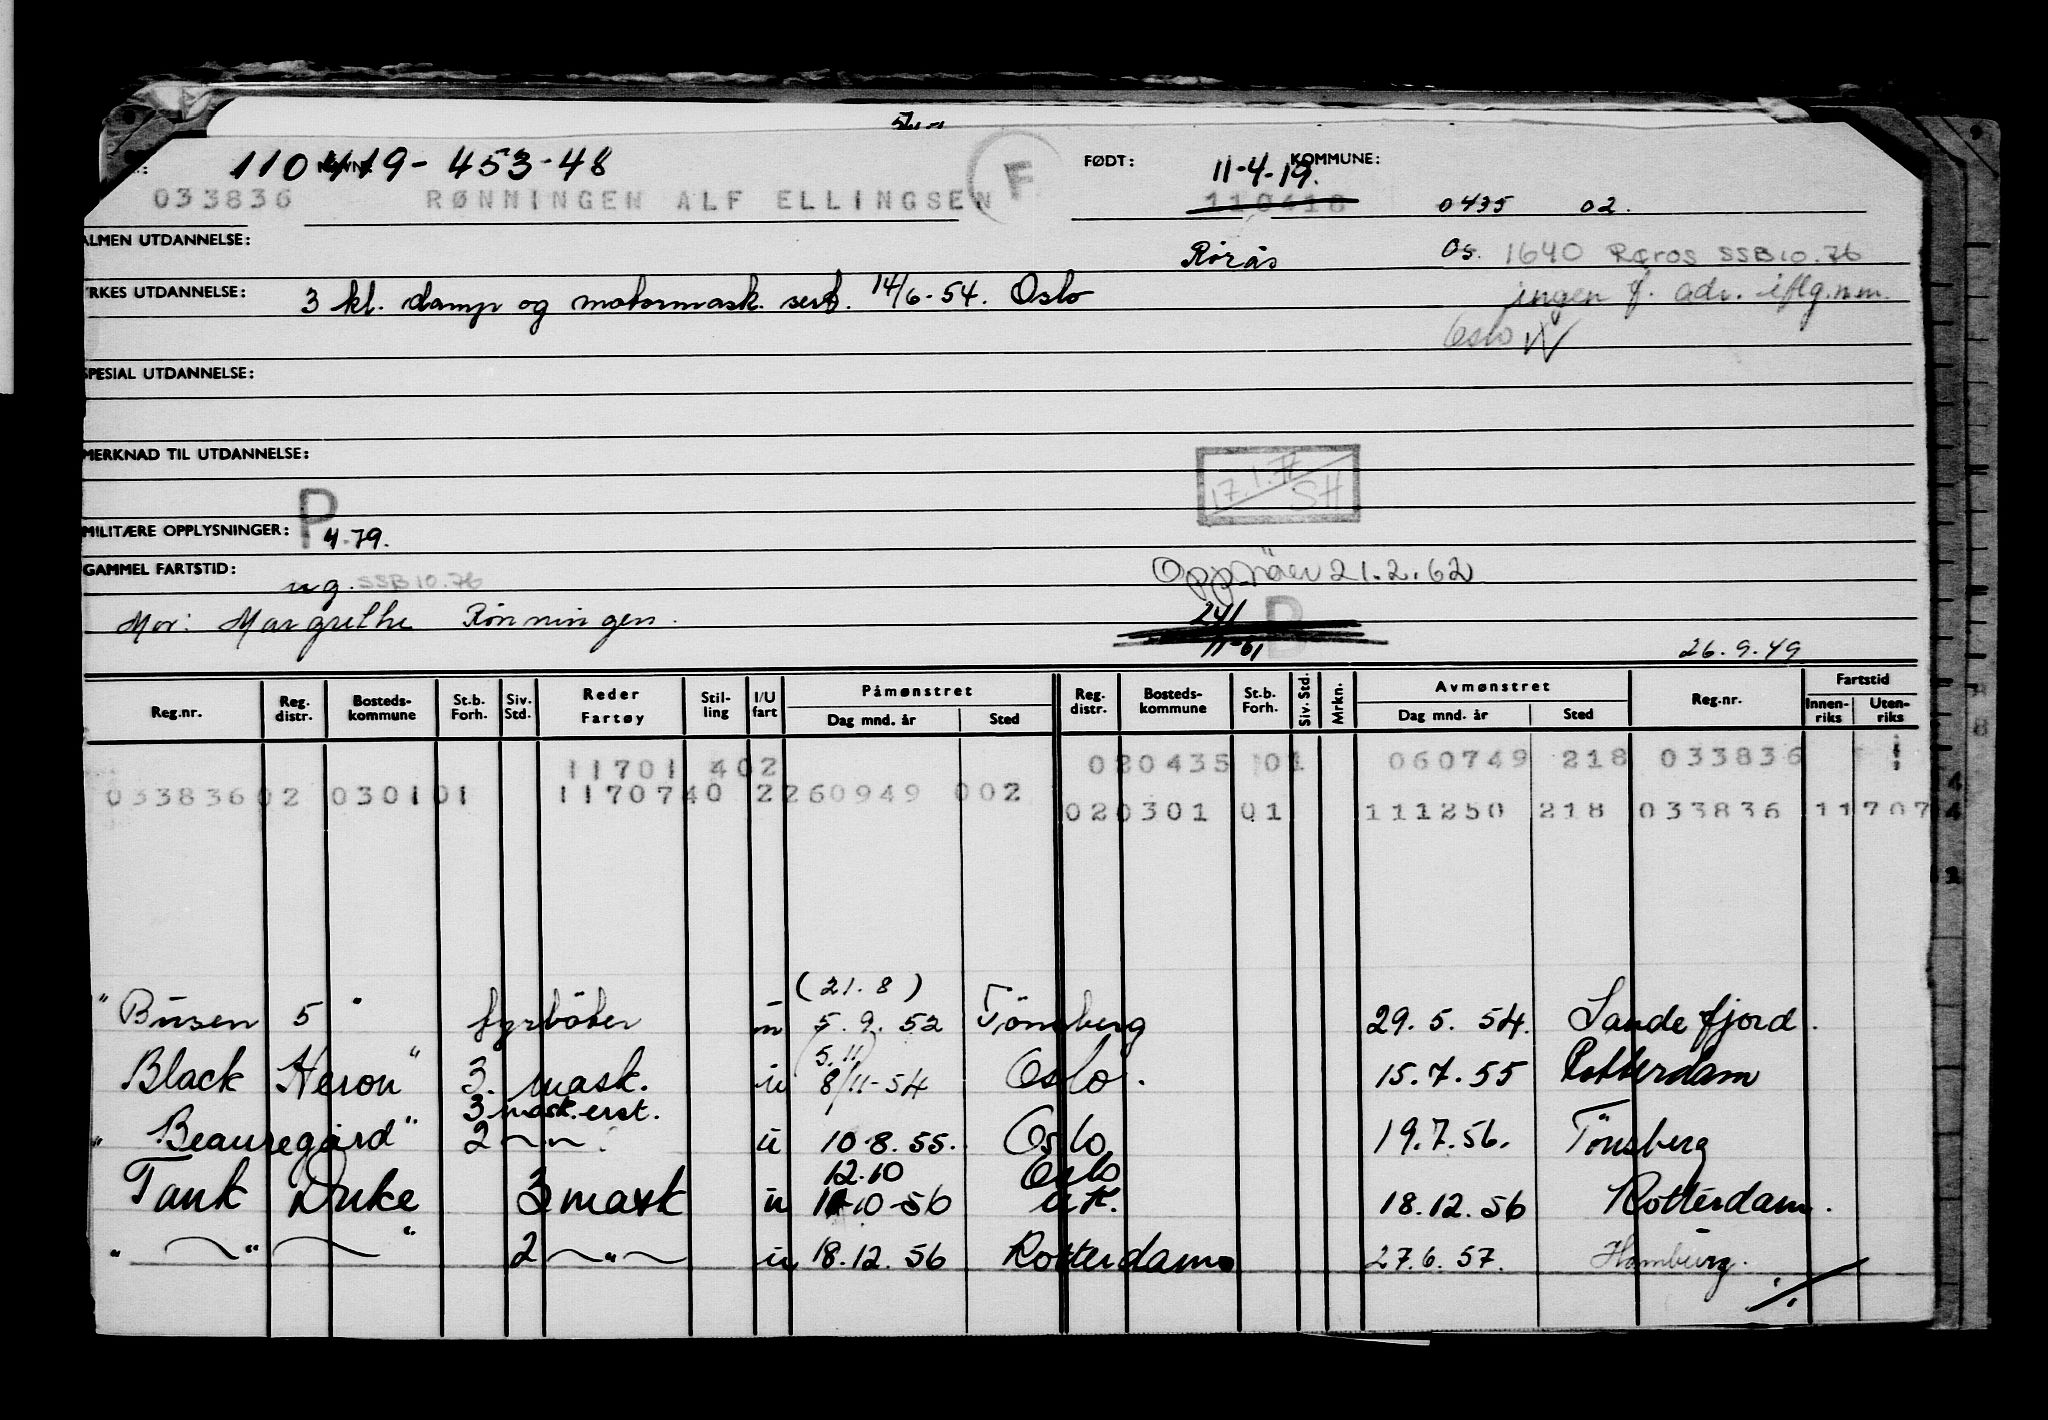 110419-453-48 FØDT: 11-4-19. KOMMUNE:
033836 RØNNINGEN ALF ELLINGSEN F 110418 0435 02.
ALMEN UTDANNELSE: Rörås Os. 1640 Røros SSB 10.76
YRKES UTDANNELSE: 3 kl. damp og motormask. sert. 14/6-54. Oslo ingen f. adr. iflg. n.m.
Oslo
SPESIAL UTDANNELSE:
MERKNAD TIL UTDANNELSE:
17.1. SH
MILITÆRE OPPLYSNINGER: P 4.79.
GAMMEL FARTSTID: ug. SSB 10.76 21.2.62
Mor: Margrethe Rønningen. 24/ 11-61 26.9.49
Reg.nr. Reg. distr. Bosteds-kommune St.b. Forh. Siv. Std. Reder Fartøy Stil-ling I/U fart Påmønstret Dag mnd. år Sted Reg. distr. Bosteds-kommune St.b. Forh. Siv. Std. Mrkn. Avmønstret Dag mnd. år Sted Reg.nr. Fartstid Innen-riks Uten-riks
11701 402 020435 01 060749 218 033836
03383602 030101 1170740 2260949 002 020301 01 111250 218 033836 11707
(21.8)
"Busen 5" fyrböter m 5.9.52 Tönsberg 29.5.54. Sandefjord.
(5.11)
Black Heron" 3. mask. u 8/11-54 Oslo. 15.7.55 Rotterdam
3 mask. erst.
"Beauregard" 2 ~"~ u 10-8.55. Oslo 19.7.56. Tönsberg
12.10 Oslo
Tank Duke 3 mask u 10-56 18.12.56 Rotterdam.
" ~"~ " 2 ~"~ u 18.12.56 Rotterdam 27.6.57. Hamburg.
./.